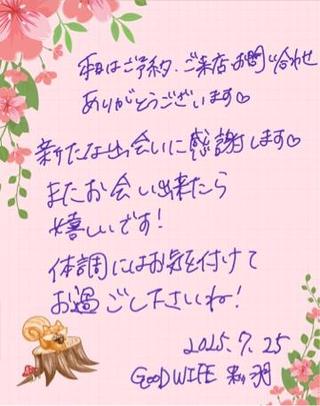 本日はご予約、ご来店、お問い合わせ
ありがとうございます♡
新たな出会いに感謝します♡
またお会い出来たら
嬉しいです!
体調にはお気を付けて
お過ごし下さいね!
2025.7.25
GOODWIFE